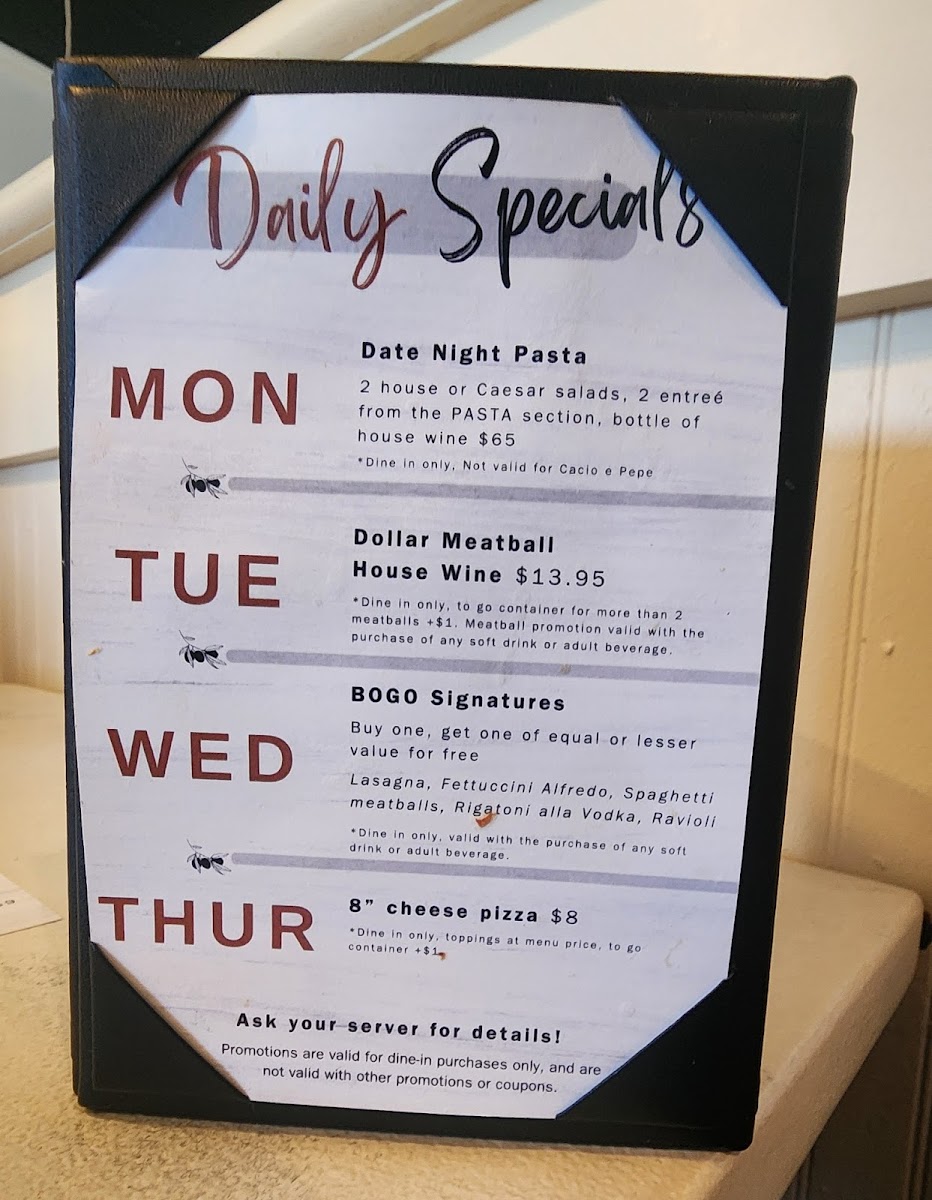 Daily Specials
MON
Date Night Pasta
2 house or Caesar salads, 2 entreé
from the PASTA section, bottle of
house wine $65
*Dine in only, Not valid for Cacio e Pepe
TUE
Dollar Meatball
House Wine $13.95
*Dine in only, to go container for more than 2
meatballs +$1. Meatball promotion valid with the
purchase of any soft drink or adult beverage.
WED
BOGO Signatures
Buy one, get one of equal or lesser
value for free
Lasagna, Fettuccini Alfredo, Spaghetti
meatballs, Rigatoni alla Vodka, Ravioli
*Dine in only, valid with the purchase of any soft
drink or adult beverage.
THUR
8" cheese pizza $8
*Dine in only, toppings at menu price, to go
container +$1
Ask your server for details!
Promotions are valid for dine-in purchases only, and are
not valid with other promotions or coupons.